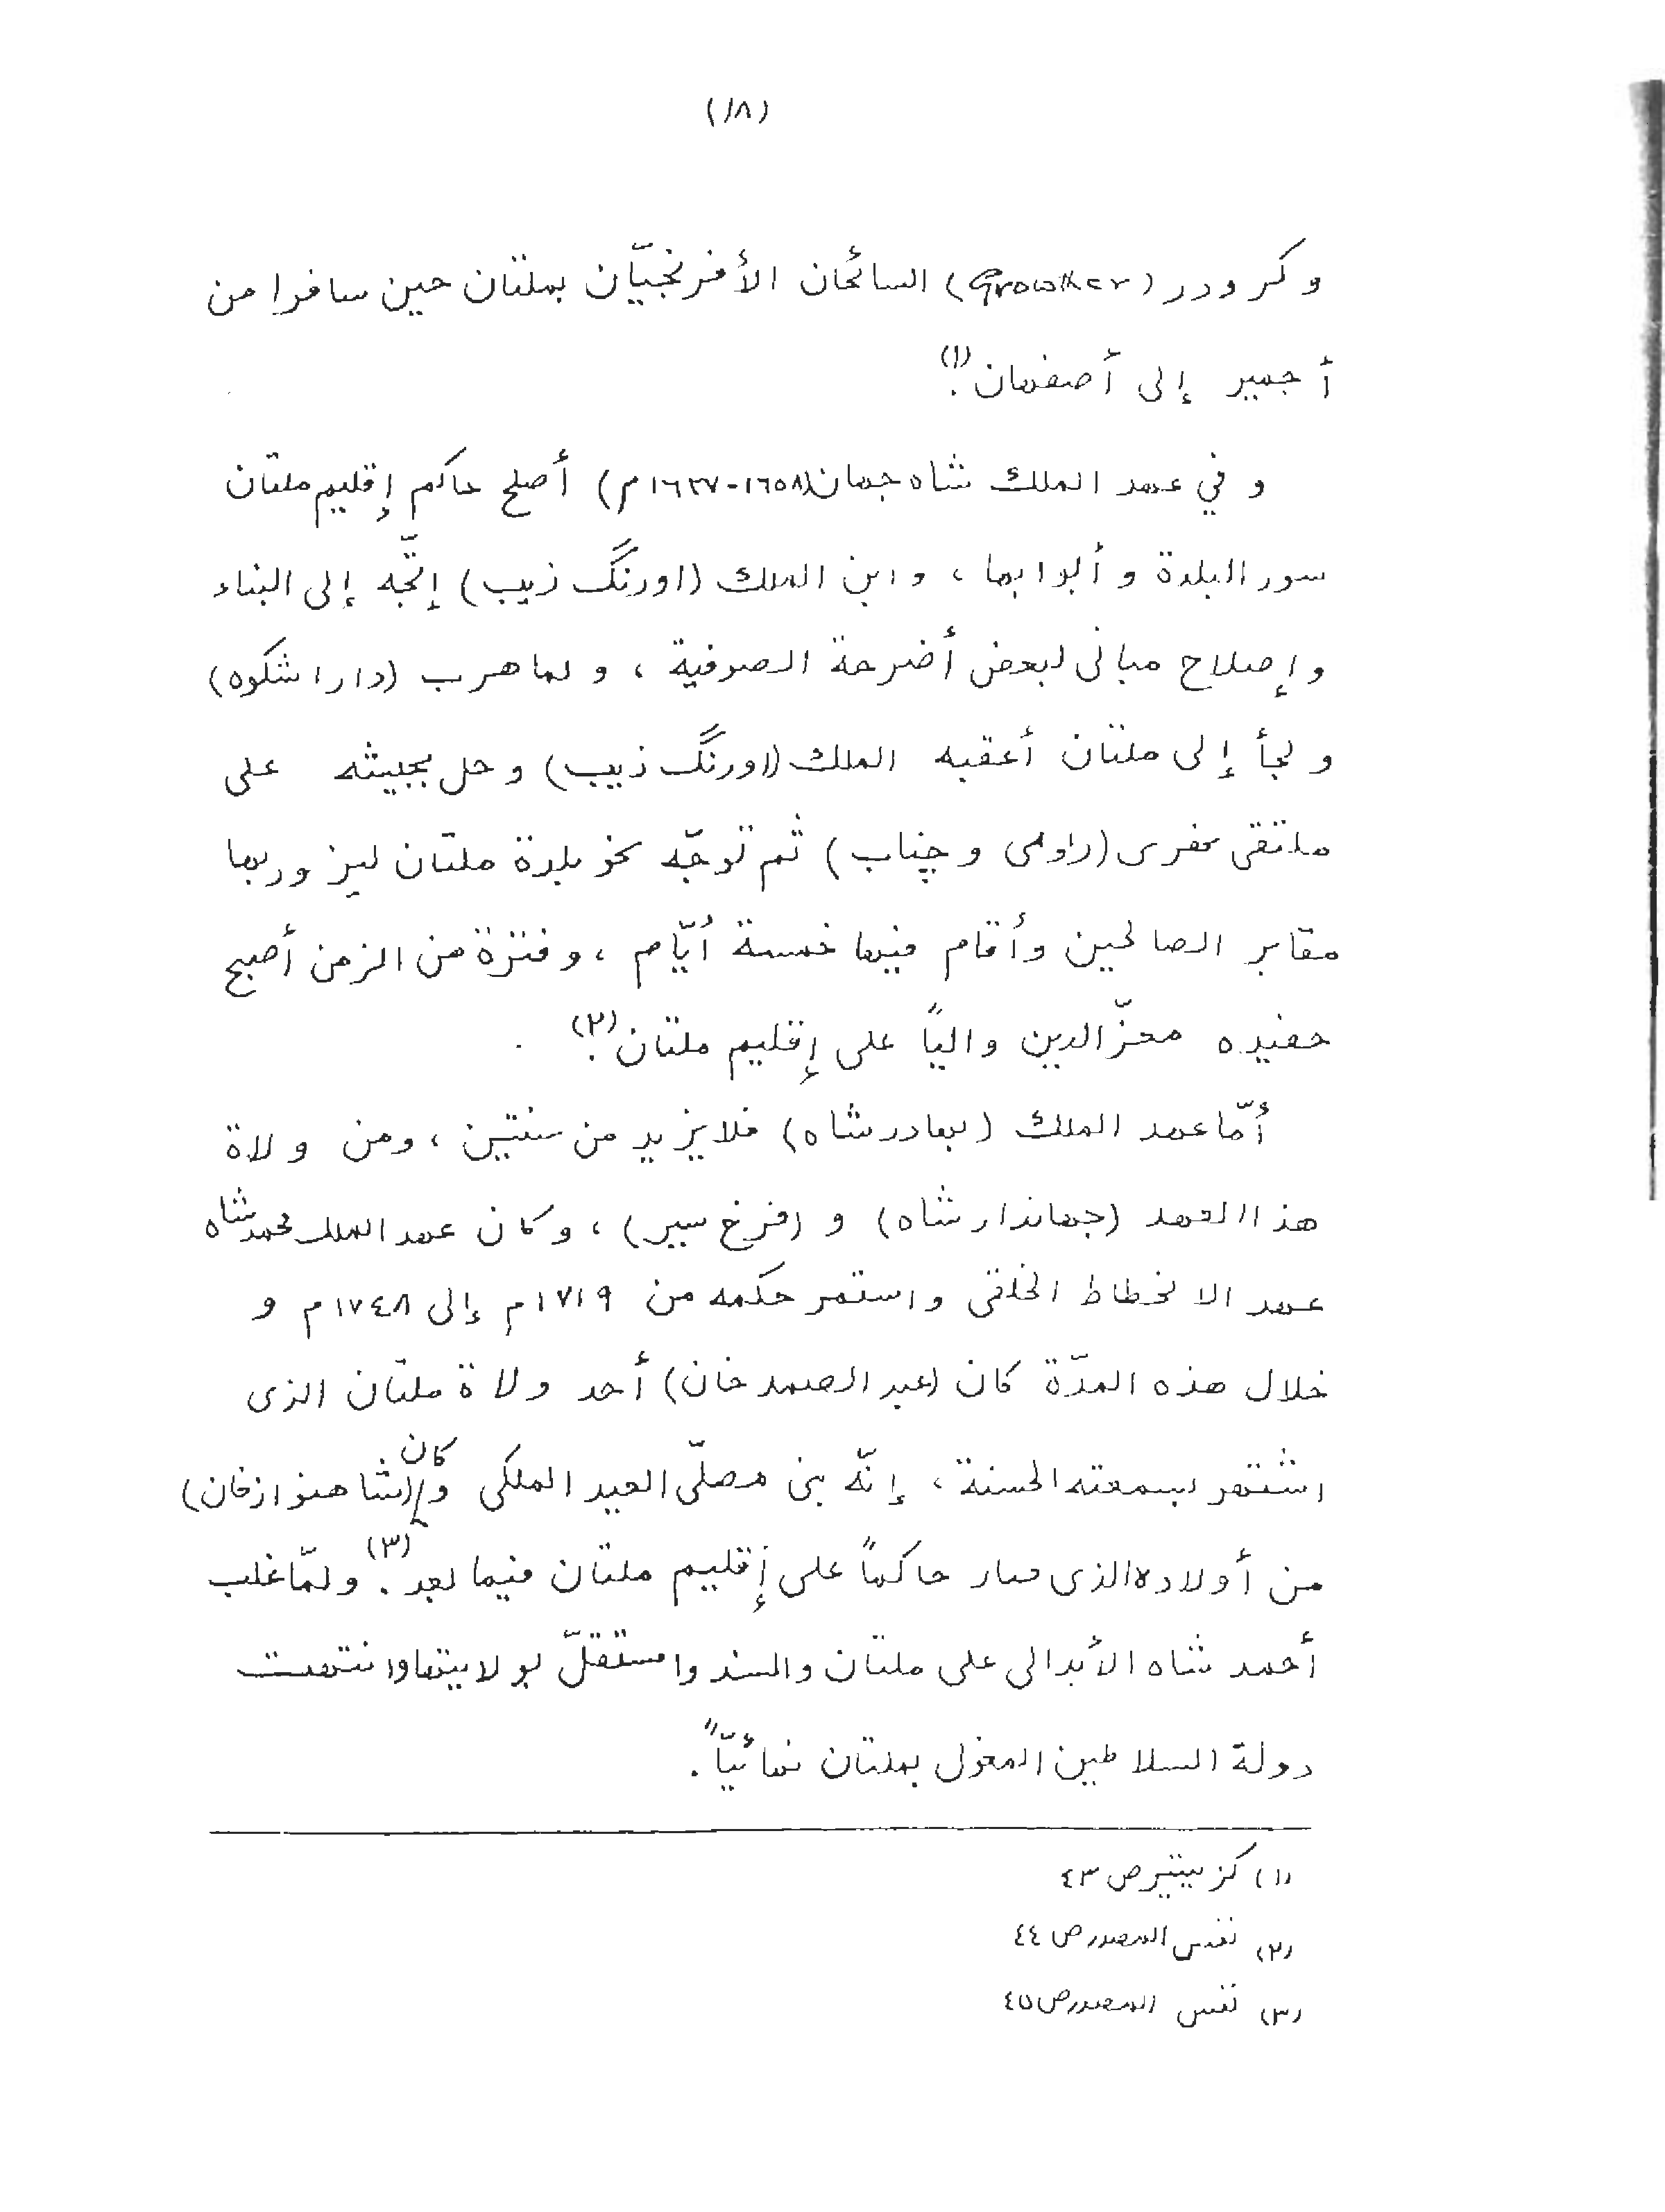 (١٨)
وكرودر (Growther) السائحان الأفرنجيّان بملتان حين سافرا من
أجمير إلى أصفهان(١).
و في عهد الملك شاه جهان(١٦٥٨-١٦٢٧م) أصلح حاكم إقليم ملتان
سور البلدة و أبوابها ، و ابن الملك (اورنگ زيب) إتّجه إلى البناء
و إصلاح مبانى لبعض أضرحة الصوفية ، و لما هرب (دارا شكوه)
و لجأ إلى ملتان أعقبه الملك (اورنگ زيب) و حل بجيشه على
ملتقى نهرى (راوى و چناب) ثم توجّه نحو بلدة ملتان ليزور بها
مقابر الصالحين وأقام فيها خمسة أيّام ، و فترة من الزمن أصبح
حفيده معزّ الدين والياً على إقليم ملتان(٢).
أمّا عهد الملك (بهادر شاه) فلا يزيد من سنتين ، ومن ولاة
هذا العهد (جهاندار شاه) و (فرخ سير) ، و كان عهد الملك محمد شاه
عهد الانحطاط الخلقى و استمر حكمه من ١٧١٩م إلى ١٧٤٨م و
خلال هذه المدّة كان (عبد الصمد خان) أحد ولاة ملتان الذى
اشتهر بسمعته الحسنة ، إنّه بنى مصلّى العيد الملكى و كان (شاهنوازخان)
من أولاده الذى صار حاكماً على إقليم ملتان فيما بعد(٣). ولمّا غلب
أحمد شاه الأبدالى على ملتان والسند واستقلّ بولايتها وانتهت
دولة السلاطين المغول بملتان نهائيّاً.
(١) گزيتير ص ٤٣
(٢) نفس المصدر ص ٤٤
(٣) نفس المصدر ص ٤٥